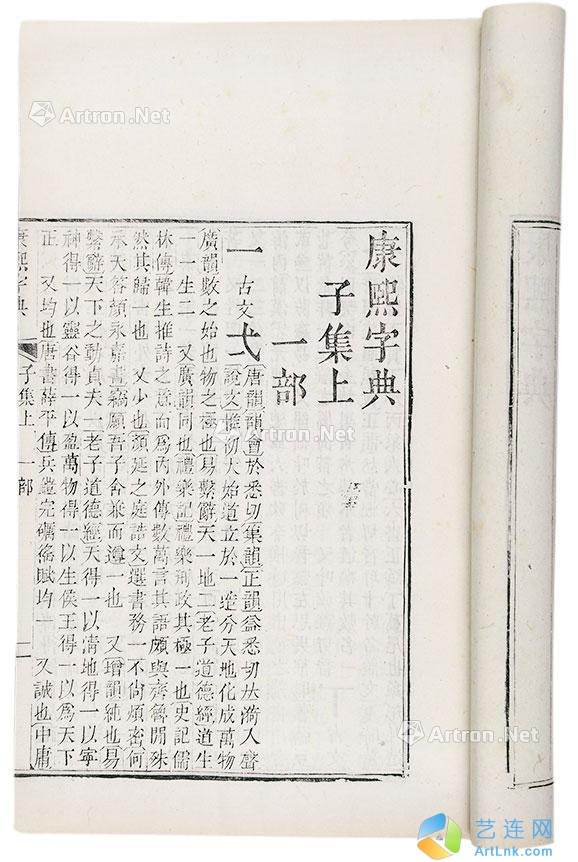 康熙字典
子集上
一部
一 古文弌
唐韻韻會於悉切集韻正韻益悉切𠀤漪入聲
說文惟初大始道立於一造分天地化成萬物
廣韻數之始也物之極也易繫辭天一地二老子道德經道生
一一生二 又廣韻同也禮樂記禮樂刑政其極一也史記儒
林傳韓生推詩之意而爲內外傳數萬言其語頗與齊魯閒殊
然其歸一也 又少也顏延之庭誥文選書務一不尙煩密何
承天答顏永嘉書竊願吾子舍兼而遵一也 又增韻純也易
繫辭天下之動貞夫一老子道德經天得一以淸地得一以寧
神得一以靈谷得一以盈萬物得一以生侯王得一以爲天下
正 又均也唐書薛平傳兵鎧完礪徭賦均一 又誠也中庸
康熙字典 子集上 一部 一
Artron.Net
Artron.Net
Artron.Net
Artron.Net
艺连网
ArtLnk.com